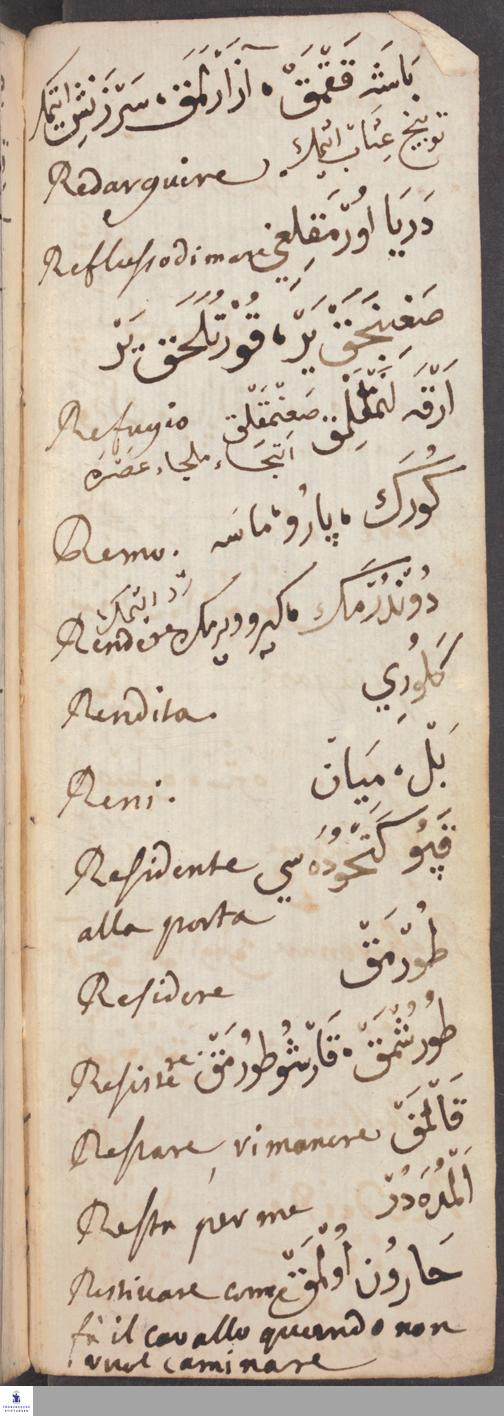 بَاشَه قَقْمَقْ ، آزَارْلَمَق ، سَرْزَنِشْ اتمك
توبيخ عِتَابْ اتمك
Redarguire.
دَرْيَا اُورْمَقْلِغِي
Reflusso di mare
صَغِنَجَقْ يَرْ ، قُورْتُلَجَقْ يَرْ
اَرْقَه لَنْمَقْلِقْ صَغِنْمَقْلِق
Refugio
التجاء ملجاء
كُورَكْ ، پارُو ، ماسَه
Remo.
رَدّ اتمك
دُونْدُرْمَكْ ، كيرو ويرمك
Rendere
كَلُورِي
Rendita.
بَلْ ، مِيَانْ
Reni.
قَپُو كَتْخُودَه سِي
Residente
alla porta
طُورْمَقْ
Residere
طُورُشْمَقْ ، قَارْشُو طُورْمَقْ
Resistere
قَالْمَقْ
Restare, rimanere
Resta per me
حَارُونْ اُولْمَقْ
Restiuare come
fà il cavallo quando non
vuol caminare